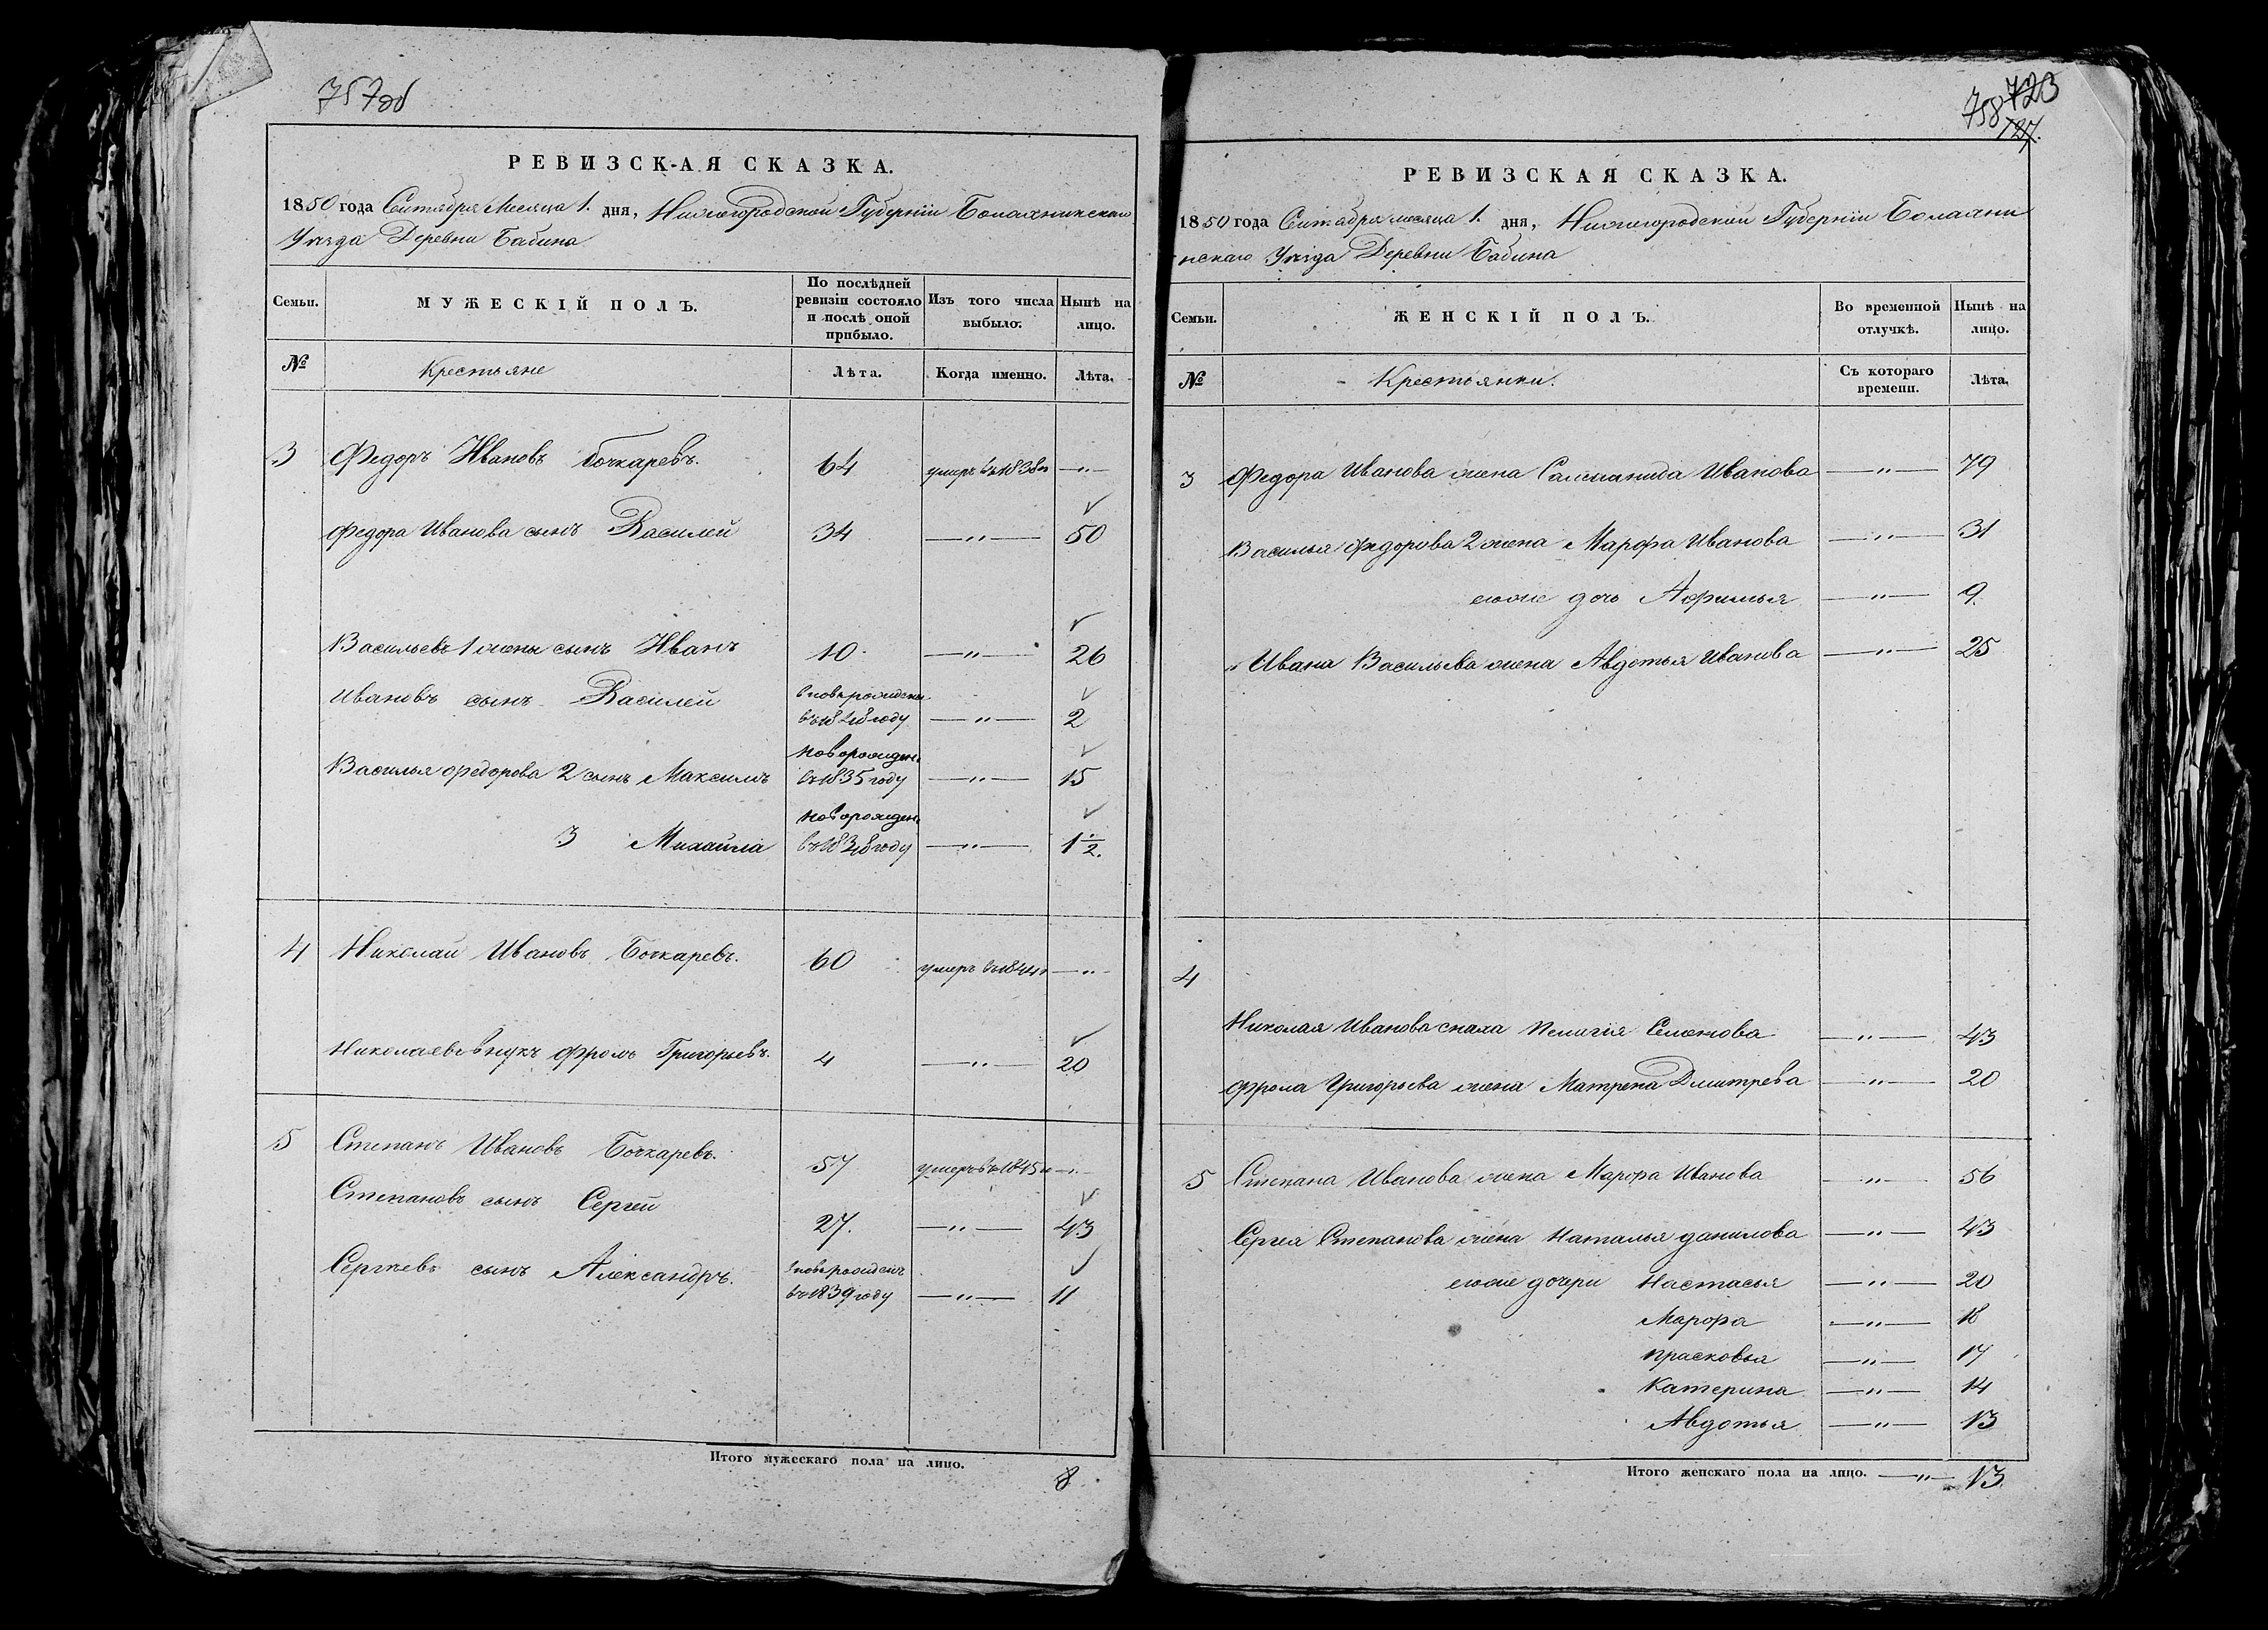 757об
РЕВИЗСКАЯ СКАЗКА.
1850 года Сентября Месяца 1. дня, Нижегородской Губернiи Балахнинскаго
Уѣзда Деревни Бабина
Семьи. МУЖЕСКIЙ ПОЛЪ. По послѣдней ревизiи состояло и послѣ оной прибыло. Изъ того числа выбыло. Нынѣ на лицо.
№ Крестьяне Лѣта. Когда именно. Лѣта.
3 Федоръ Ивановъ Бочкаревъ. 64 умеръ въ 1838 г. —〃—
Федора Иванова сынъ Василей 34 —〃— 50
Васильевъ 1 жены сынъ Иванъ 10 —〃— 26
Ивановъ сынъ Василей вновь рожденъ
въ 1848 году —〃— 2
Василья Федорова 2 сынъ Максимъ новорожден.
въ 1835 году —〃— 15
3 Михайла новорожден.
въ 18 году —〃— 1 1/2.
4 Николай Ивановъ Бочкаревъ. 60 умеръ въ 1844 г. —〃—
Николаевъ внукъ Фромъ Григорьевъ. 4 —〃— 20
5 Степанъ Ивановъ Бочкаревъ. 57 умеръ въ 1845 г. —〃—
Степановъ сынъ Сергей 27. —〃— 43
Сергѣевъ сынъ Александръ. вновь рожденъ
въ 1839 году —〃— 11
Итого мужескаго пола на лицо. 8
758 723
727.
РЕВИЗСКАЯ СКАЗКА.
1850 года Сентября месяца 1. дня, Нижегородской Губернiи Балахни
нскаго Уѣзда Деревни Бабина
Семьи. ЖЕНСКIЙ ПОЛЪ. Во временной отлучкѣ. Нынѣ на лицо.
№ Крестьянки. Съ котораго времени. Лѣта.
3 Федора Иванова жена Иванова —〃— 79
Василья Федорова 2 жена Марфа Иванова —〃— 31
егоже дочь Афимья —〃— 9.
Ивана Васильева жена Авдотья Иванова —〃— 25
4
Николая Иванова снаха Пелагiя Семенова —〃— 43
Фрома Григорьева жена Матрена Дмитрева —〃— 20
5 Степана Иванова жена Марфа Иванова —〃— 56
Сергея Степанова жена Наталья Данилова —〃— 43
егоже дочери Настасья —〃— 20
Марфа —〃— 18
Прасковья —〃— 17
Катерина —〃— 14
Авдотья —〃— 13
Итого женскаго пола на лицо. —〃— 13.